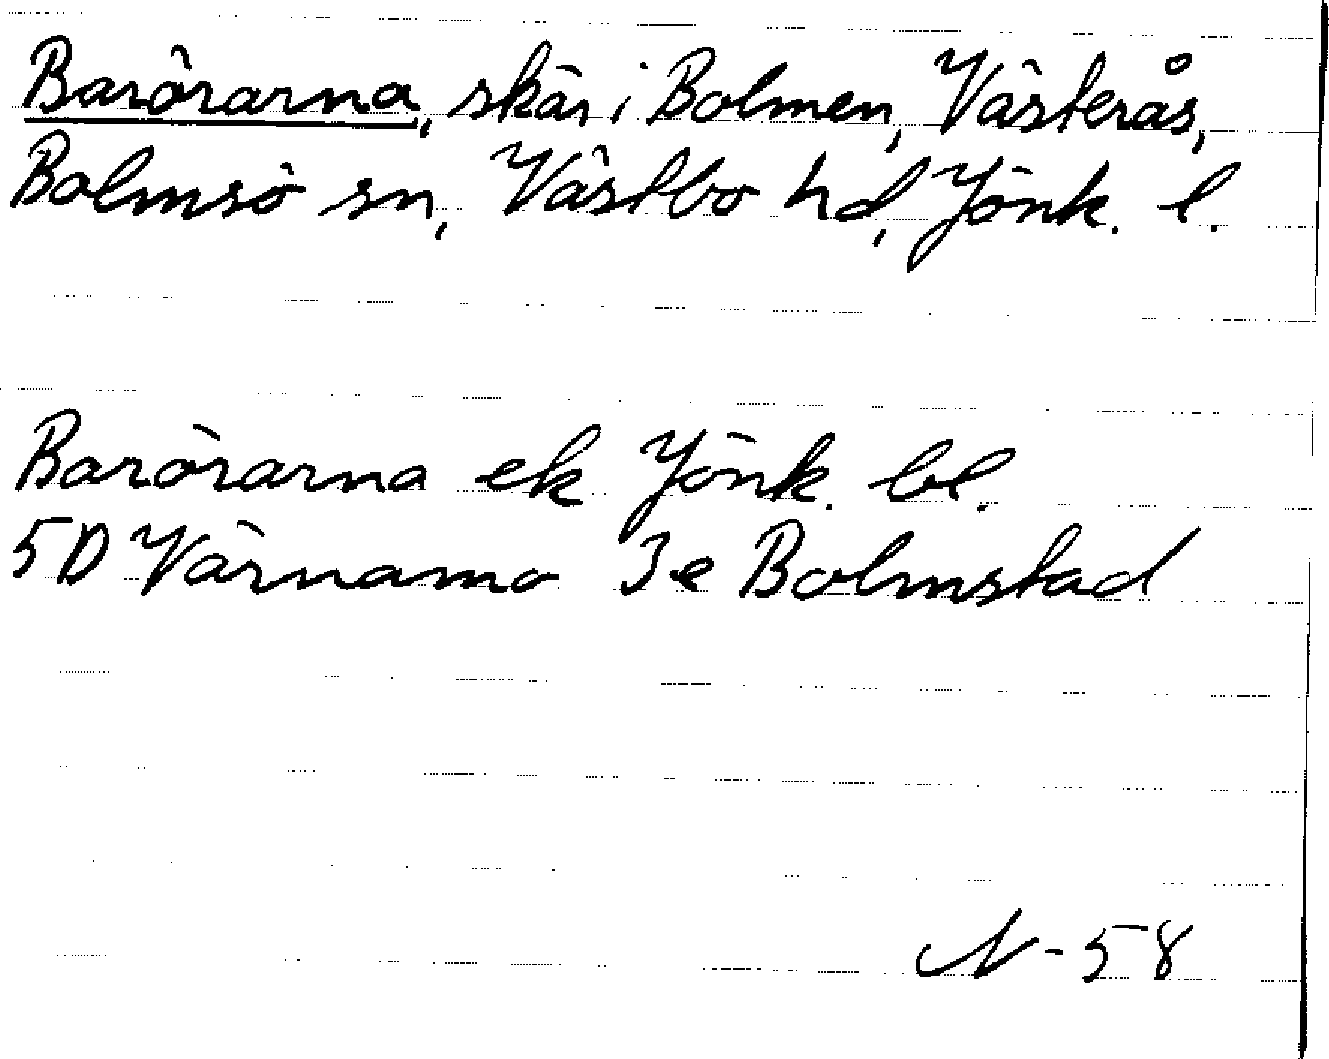 Barörarna, skär i Bolmen, Västerås,
Bolmsö sn, Västbo hd, Jönk. l.
Barörarna ek Jönk. bl.
5D Värnamo 3e Bolmstad
N-58